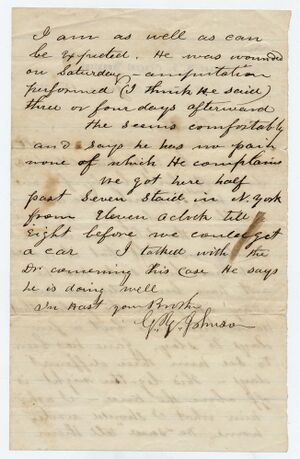 I am as well as can
be expected. He was wounded
on Saturday - amputation
performed (I think He said)
three or four days afterward
He seems comfortably
and says he has no pain
none of which He complains
We got here half
past Seven Staid in N. York
from Eleven aclock till
Eight before we could get
a car I talked with the
Dr concerning his case He says
he is doing well
In Hast your Brother
Johnson